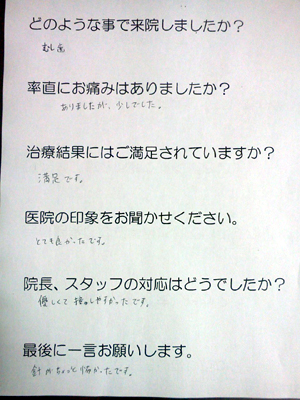 どのような事で来院しましたか？
むし歯
率直にお痛みはありましたか？
ありましたが、少しでした。
治療結果にはご満足されていますか？
満足です。
医院の印象をお聞かせください。
とても良かったです。
院長、スタッフの対応はどうでしたか？
優しくて接しやすかったです。
最後に一言お願いします。
針がちょっと怖かったです。